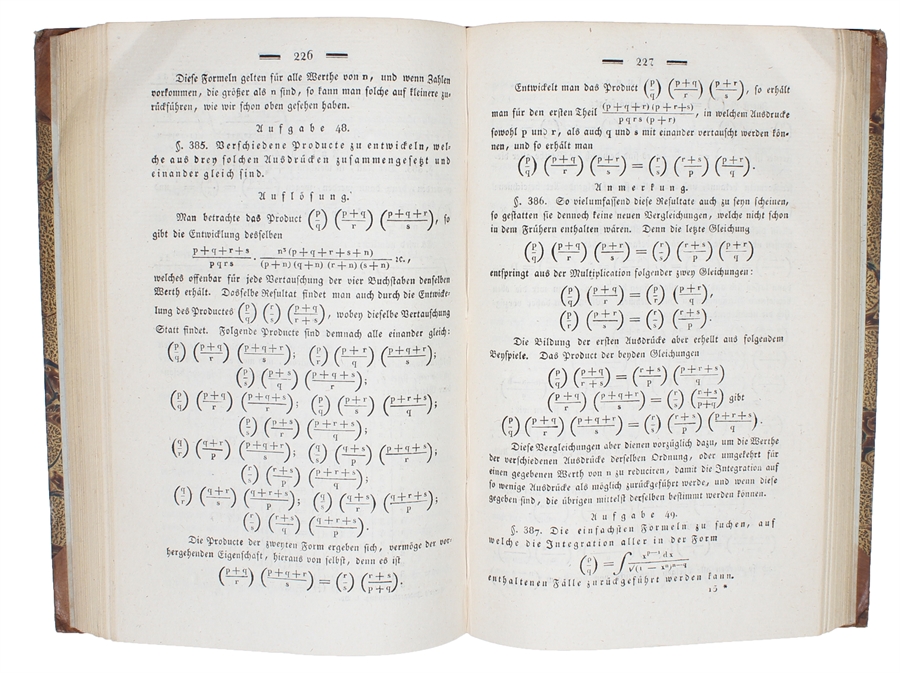 226
Diese Formeln gelten für alle Werthe von n, und wenn Zahlen
vorkommen, die größer als n sind, so kann man solche auf kleinere zu-
rückführen, wie wir schon oben gesehen haben.
Aufgabe 48.
§. 385. Verschiedene Producte zu entwickeln, wel-
che aus drey solchen Ausdrücken zusammengesetzt und
einander gleich sind.
Auflösung.
Man betrachte das Product (p/q) ((p+q)/r) ((p+q+r)/s), so
gibt die Entwicklung desselben
(p+q+r+s)/(pqrs) · (n³(p+q+r+s+n))/((p+n)(q+n)(r+n)(s+n)) · ꝛc.,
welches offenbar für jede Vertauschung der vier Buchstaben denselben
Werth erhält. Dasselbe Resultat findet man auch durch die Entwicke-
lung des Productes (p/q) (r/s) ((p+q)/(r+s)), wobey dieselbe Vertauschung
Statt findet. Folgende Producte sind demnach alle einander gleich:
(p/q) ((p+q)/r) ((p+q+r)/s); (p/r) ((p+r)/q) ((p+q+r)/s);
(p/s) ((p+s)/q) ((p+q+s)/r);
(p/q) ((p+q)/s) ((p+q+s)/r); (p/q) ((p+r)/s) ((p+r+s)/q);
(p/s) ((p+s)/r) ((p+r+s)/q);
(q/r) ((q+r)/p) ((p+q+r)/s); (q/s) ((q+s)/p) ((p+q+s)/r);
(r/s) ((r+s)/p) ((p+r+s)/q);
(q/r) ((q+r)/s) ((q+r+s)/p); (q/s) ((q+s)/r) ((q+r+s)/p);
(r/s) ((r+s)/q) ((q+r+s)/p).
Die Producte der zweyten Form ergeben sich, vermöge der vor-
hergehenden Eigenschaft, hieraus von selbst, denn es ist
((p+q)/r) ((p+q+r)/s) = (r/s) ((r+s)/(p+q)).
227
Entwickelt man das Product (p/q) ((p+q)/r) ((p+r)/s), so erhält
man für den ersten Theil ((p+q+r)(p+r+s))/(pqrs(p+r)), in welchem Ausdrucke
sowohl p und r, als auch q und s mit einander vertauscht werden kön-
nen, und so erhält man
(p/q) ((p+q)/r) ((p+r)/s) = (r/s) ((r+s)/p) ((p+r)/q).
Anmerkung.
§. 386. So vielumfassend diese Resultate auch zu seyn scheinen,
so gestatten sie dennoch keine neuen Vergleichungen, welche nicht schon
in dem Frühern enthalten wären. Denn die letzte Gleichung
(p/q) ((p+q)/r) ((p+r)/s) = (r/s) ((r+s)/p) ((p+r)/q)
entspringt aus der Multiplication folgender zwey Gleichungen:
(p/q) ((p+q)/r) = (p/r) ((p+r)/q),
(p/r) ((p+r)/s) = (r/s) ((r+s)/p).
Die Bildung der ersten Ausdrücke aber erhellt aus folgendem
Beyspiele. Das Product der beyden Gleichungen
(p/q) ((p+q)/(r+s)) = ((r+s)/p) ((p+r+s)/q)
((p+q)/r) ((p+q+r)/s) = (r/s) ((r+s)/(p+q)) gibt
(p/q) ((p+q)/r) ((p+q+r)/s) = (r/s) ((r+s)/p) ((p+r+s)/q).
Diese Vergleichungen aber dienen vorzüglich dazu, um die Werthe
der verschiedenen Ausdrücke derselben Ordnung, oder umgekehrt für
einen gegebenen Werth von n zu reduciren, damit die Integration auf
so wenige Ausdrücke als möglich zurückgeführt werde, und wenn diese
gegeben sind, die übrigen mittelst derselben bestimmt werden können.
Aufgabe 49.
§. 387. Die einfachsten Formeln zu suchen, auf
welche die Integration aller in der Form
(p/q) = ∫ x^(p−1) dx / √(1 − xⁿ)^(n−q)
enthaltenen Fälle zurückgeführt werden kann.
15 *